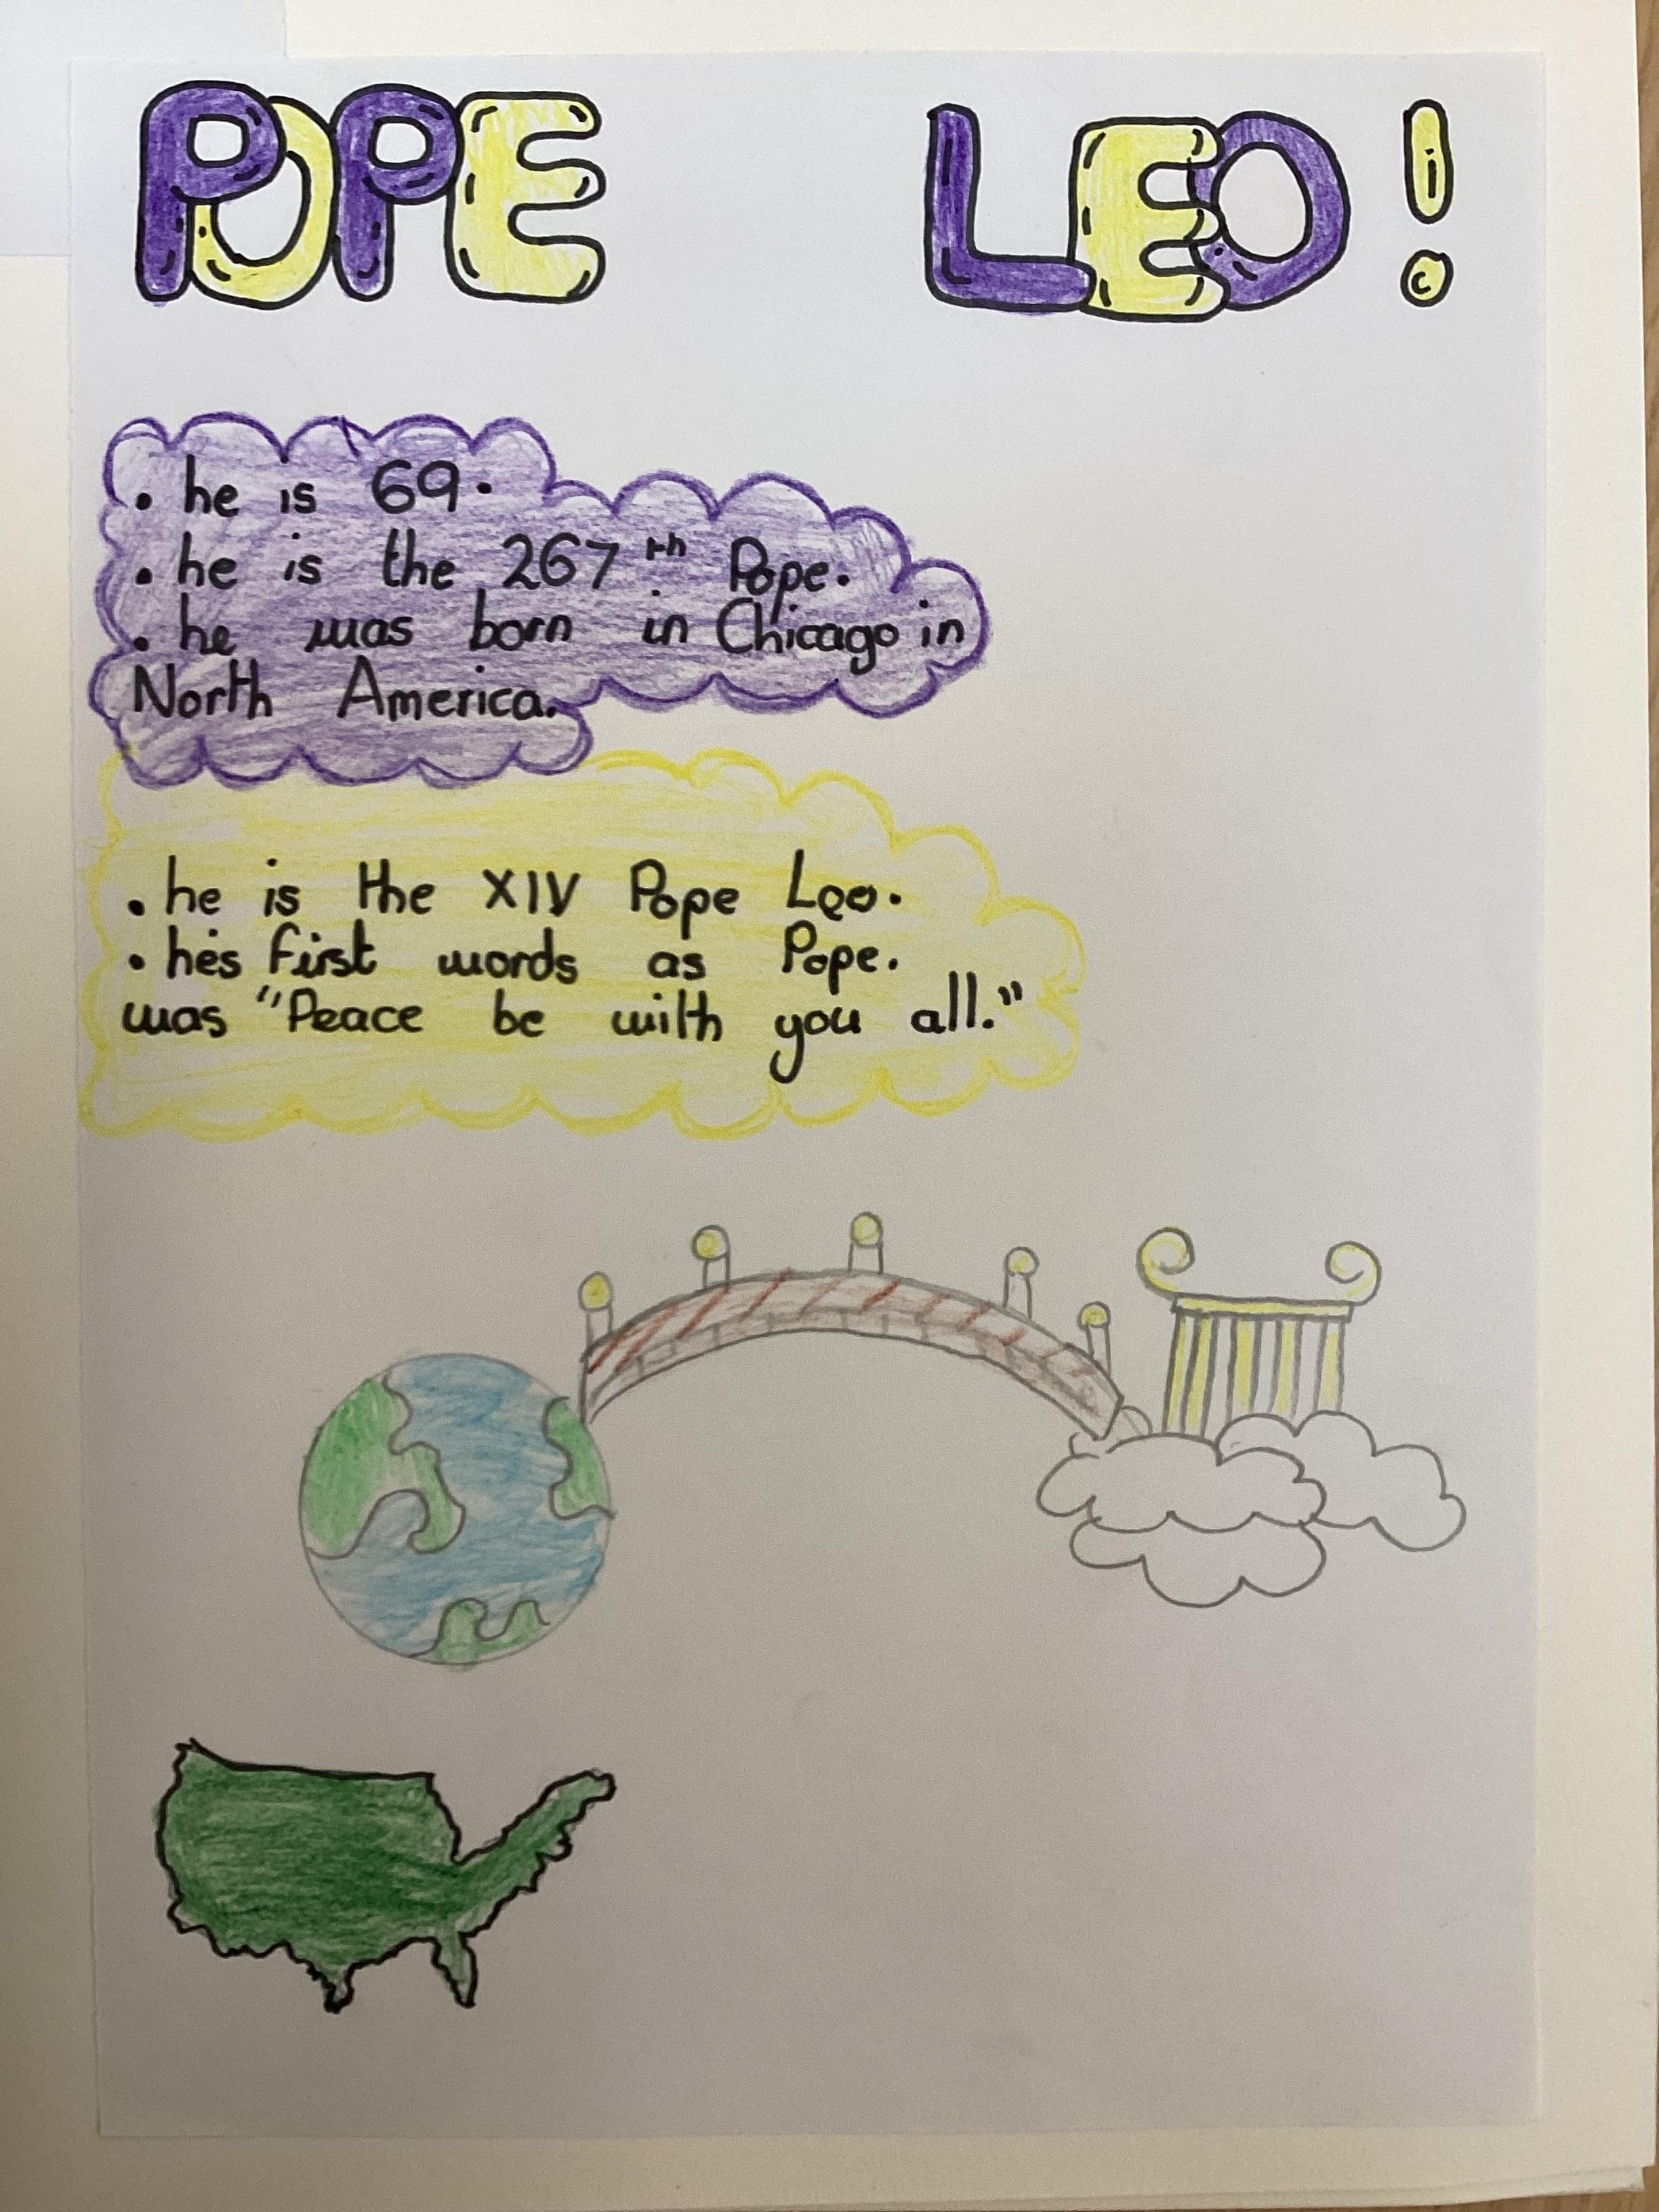 POPE LEO!
• he is 69.
• he is the 267th Pope.
• he was born in Chicago in
North America.
• he is the XIV Pope Leo.
• he's first words as Pope.
was "Peace be with you all."